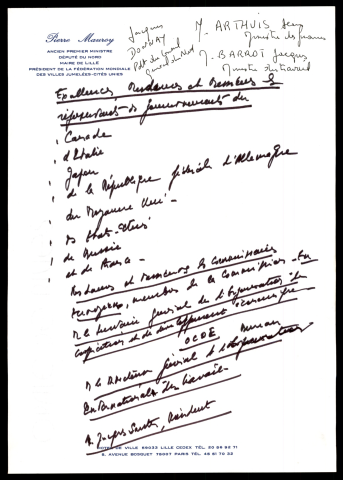 Pierre Mauroy
ANCIEN PREMIER MINISTRE
DÉPUTÉ DU NORD
MAIRE DE LILLE
PRÉSIDENT DE LA FÉDÉRATION MONDIALE
DES VILLES JUMELÉES-CITÉS UNIES
Jacques
DONNAY
Pdt du Conseil
Général du Nord
M. ARTHUIS Jean
Ministre des finances
M. BARROT Jacques
Ministre du travail
Excellences, Mesdames et Messieurs les
représentants des Gouvernements du
Canada
d'Italie
Japon
de la République fédérale d'Allemagne
du Royaume Uni -
des Etats-Unis
de Russie
et de France -
Mesdames et Messieurs les Commissaires
européens, membres de la Commission -
M. le Secrétaire général de l'Organisation de
Coopération et de développement économique -
OCDE
M. le Directeur général de l'Organisation
Internationale du travail
M. Jacques Santer, Président
HÔTEL DE VILLE 59033 LILLE CEDEX TÉL. 20 99 82 71
6, AVENUE BOSQUET 75007 PARIS TÉL. 45 51 70 32